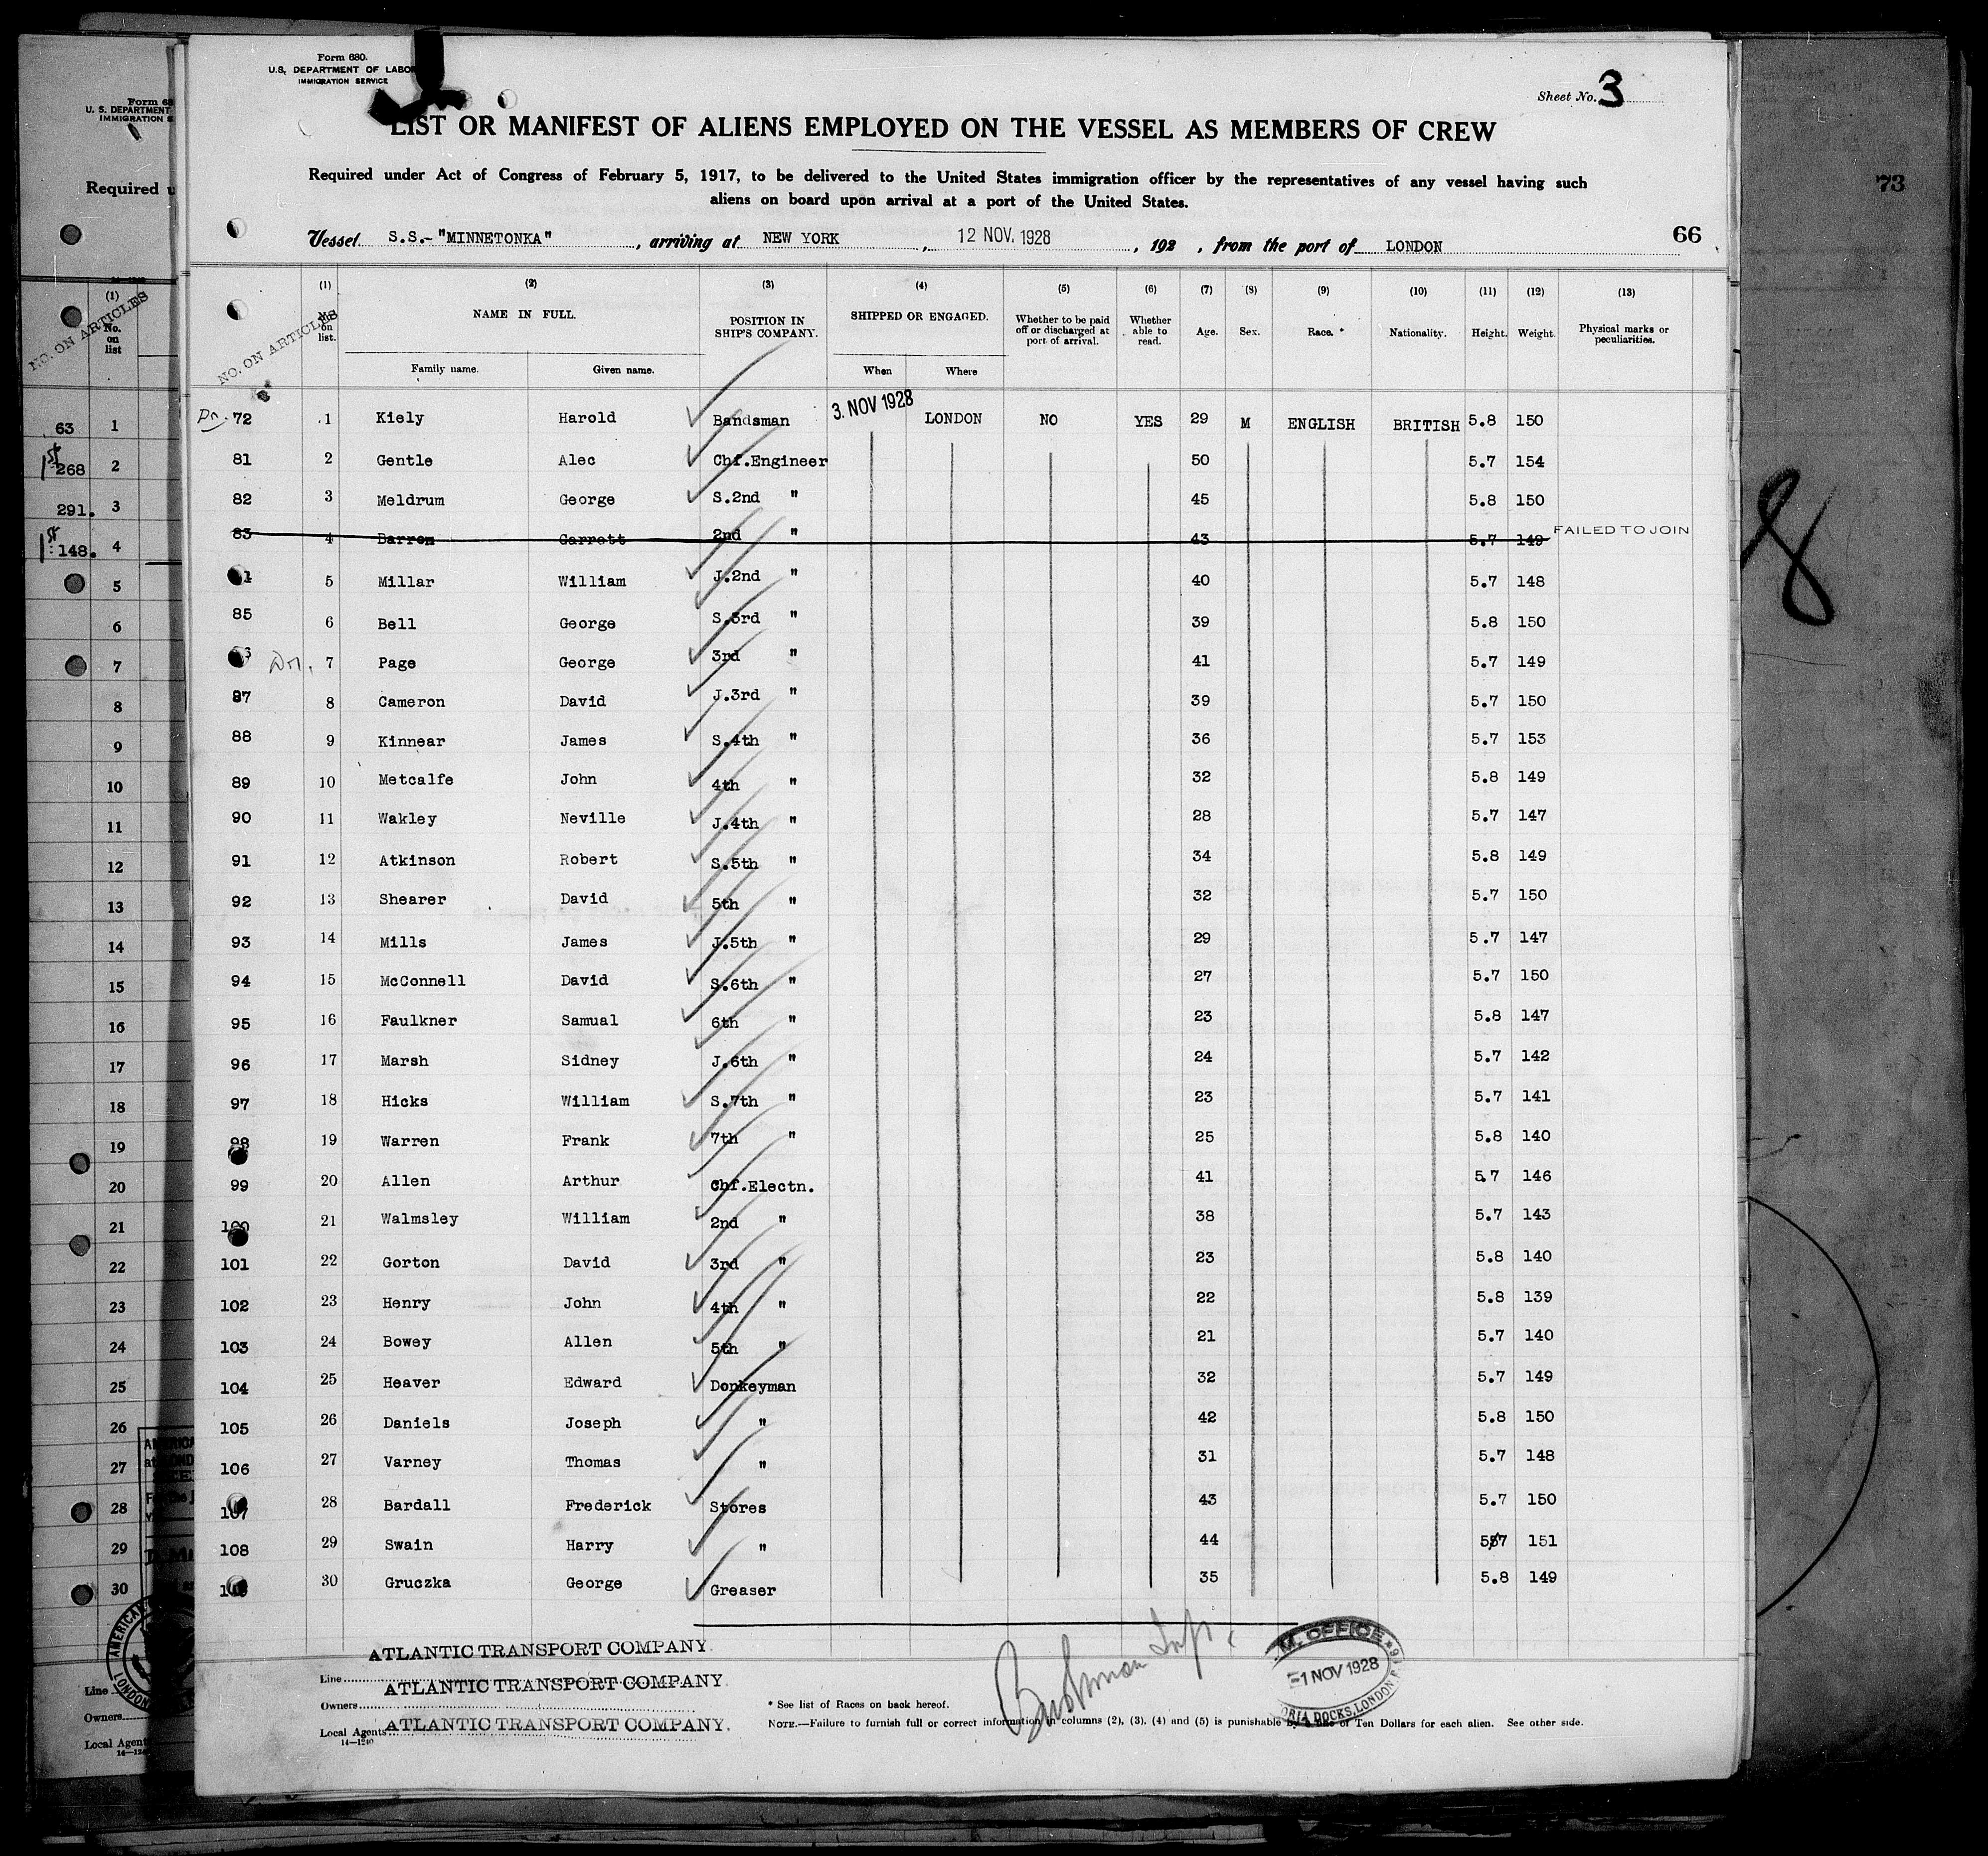 Form 680.
U.S. DEPARTMENT OF LABOR
IMMIGRATION SERVICE
Sheet No. 3
LIST OR MANIFEST OF ALIENS EMPLOYED ON THE VESSEL AS MEMBERS OF CREW
Required under Act of Congress of February 5, 1917, to be delivered to the United States immigration officer by the representatives of any vessel having such
aliens on board upon arrival at a port of the United States.
66
Vessel S.S.-"MINNETONKA", arriving at NEW YORK, 12 NOV. 1928, 192 , from the port of LONDON
NO. ON ARTICLES
(1) (2) (3) (4) (5) (6) (7) (8) (9) (10) (11) (12) (13)
No. on list. NAME IN FULL. POSITION IN SHIP'S COMPANY. SHIPPED OR ENGAGED. Whether to be paid off or discharged at port of arrival. Whether able to read. Age. Sex. Race. * Nationality. Height. Weight. Physical marks or peculiarities.
Family name. Given name. When Where
72 1 Kiely Harold Bandsman 3. NOV 1928 LONDON NO YES 29 M ENGLISH BRITISH 5.8 150
81 2 Gentle Alec Chf.Engineer 50 5.7 154
82 3 Meldrum George S.2nd " 45 5.8 150
83 4 Barron Garrett 2nd " 43 5.7 149 FAILED TO JOIN
5 Millar William J.2nd " 40 5.7 148
85 6 Bell George S.3rd " 39 5.8 150
7 Page George 3rd " 41 5.7 149
87 8 Cameron David J.3rd " 39 5.7 150
88 9 Kinnear James S.4th " 36 5.7 153
89 10 Metcalfe John 4th " 32 5.8 149
90 11 Wakley Neville J.4th " 28 5.7 147
91 12 Atkinson Robert S.5th " 34 5.8 149
92 13 Shearer David 5th " 32 5.7 150
93 14 Mills James J.5th " 29 5.7 147
94 15 McConnell David S.6th " 27 5.7 150
95 16 Faulkner Samual 6th " 23 5.8 147
96 17 Marsh Sidney J.6th " 24 5.7 142
97 18 Hicks William S.7th " 23 5.7 141
98 19 Warren Frank 7th " 25 5.8 140
99 20 Allen Arthur Chf.Electn. 41 5.7 146
100 21 Walmsley William 2nd " 38 5.7 143
101 22 Gorton David 3rd " 23 5.8 140
102 23 Henry John 4th " 22 5.8 139
103 24 Bowey Allen 5th " 21 5.7 140
104 25 Heaver Edward Donkeyman 32 5.7 149
105 26 Daniels Joseph " 42 5.8 150
106 27 Varney Thomas " 31 5.7 148
107 28 Bardall Frederick Stores 43 5.7 150
108 29 Swain Harry " 44 5.7 151
30 Gruczka George Greaser 35 5.8 149
ATLANTIC TRANSPORT COMPANY.
Line ATLANTIC TRANSPORT COMPANY.
Owners
Local Agents ATLANTIC TRANSPORT COMPANY.
14—1240
* See list of Races on back hereof.
NOTE.—Failure to furnish full or correct information in columns (2), (3), (4) and (5) is punishable by a fine of Ten Dollars for each alien. See other side.
M. OFFICE
-1 NOV 1928
DOCKS, LONDON
U. S. DEPARTMENT
Required
NO. ON ARTICLES
(1)
No. on list
63 1
1st 268 2
291. 3
1st 148. 4
5
6
7
8
9
10
11
12
13
14
15
16
17
18
19
20
21
22
23
24
25
26
27
28
29
30
Line
Owners
Local Agent
73
8